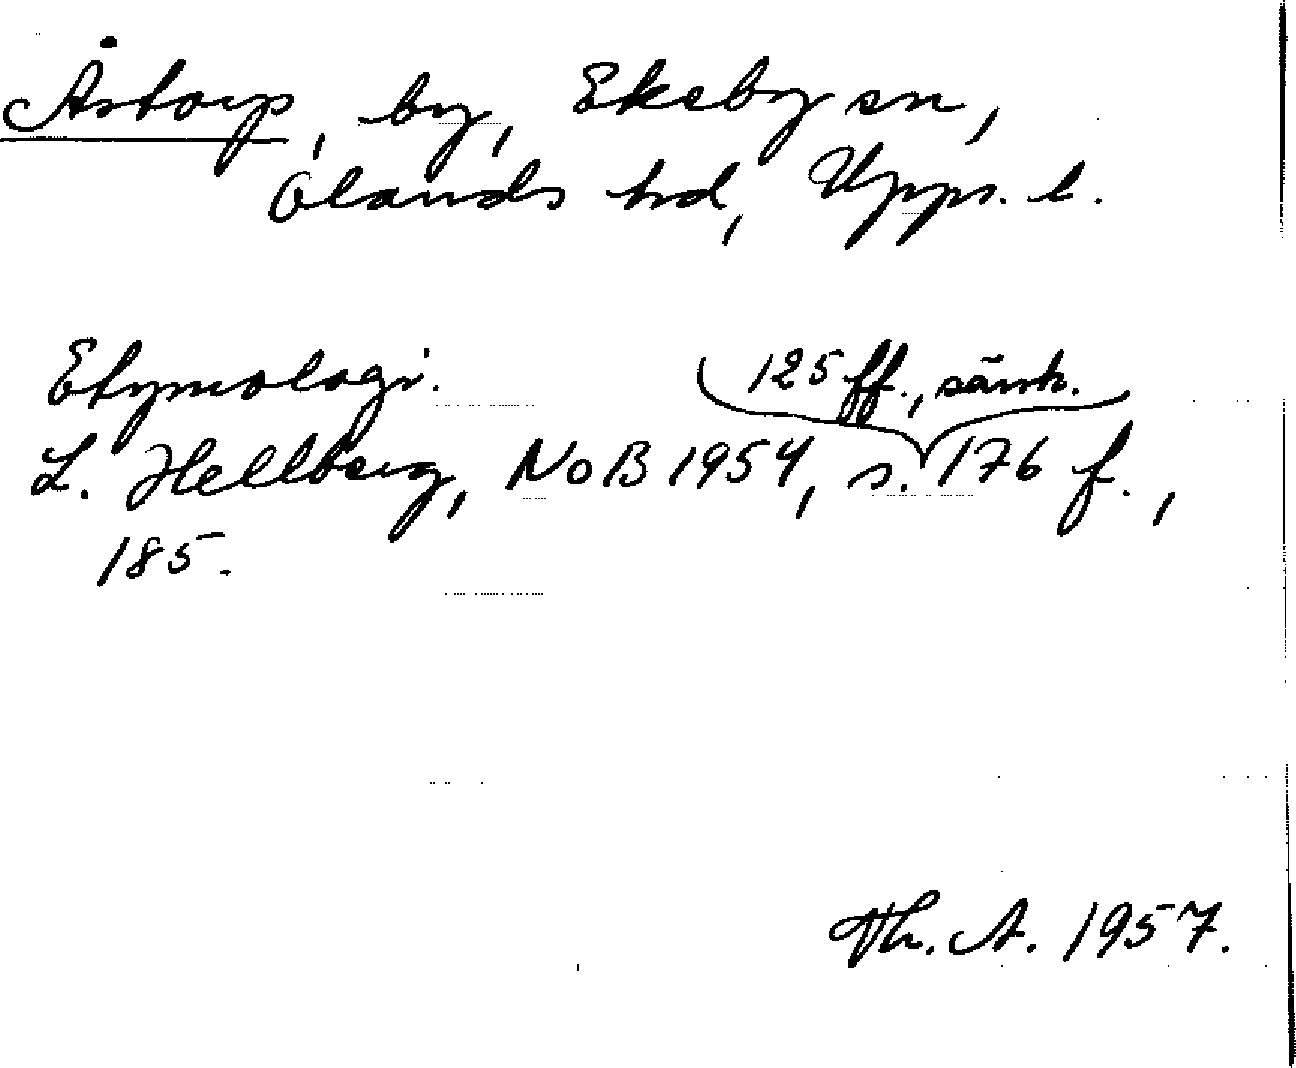 Åstorp, by, Ekeby sn,
Olands hd, Upps. l.
Etymologi.
L. Hellberg, NoB 1954, s. 125 ff., särsk. 176 f.,
185.
Th. A. 1957.